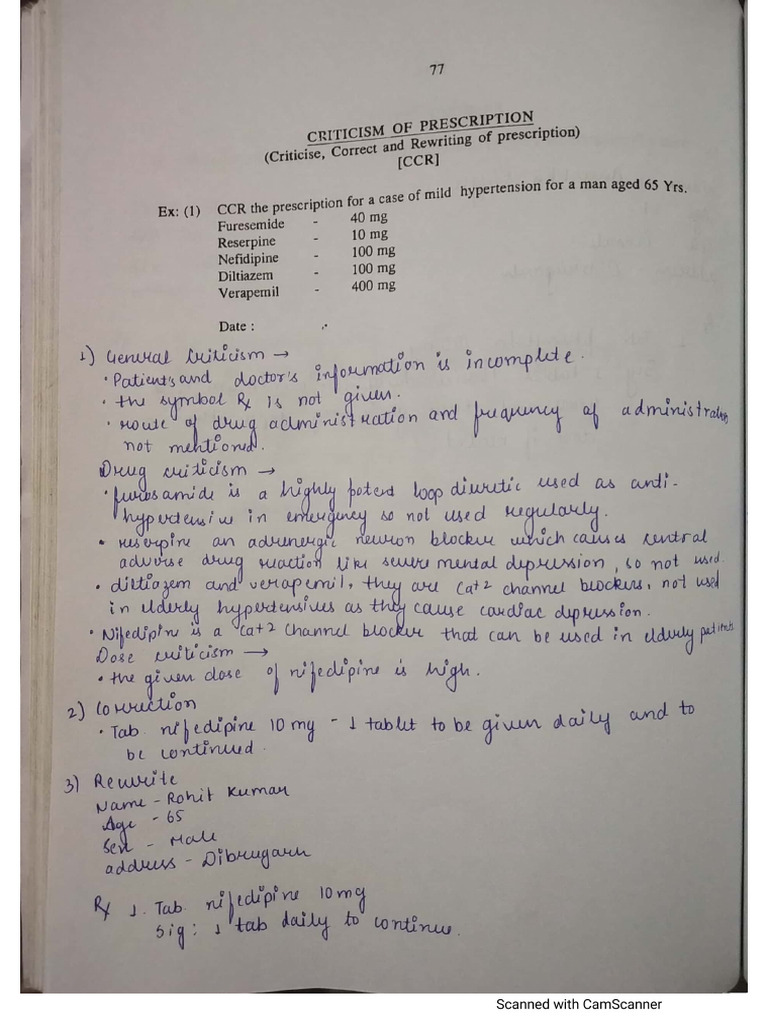 77
CRITICISM OF PRESCRIPTION
(Criticise, Correct and Rewriting of prescription)
[CCR]
Ex: (1) CCR the prescription for a case of mild hypertension for a man aged 65 Yrs.
Furesemide - 40 mg
Reserpine - 10 mg
Nefidipine - 100 mg
Diltiazem - 100 mg
Verapemil - 400 mg
Date :
1) General Criticism →
• Patient's and doctor's information is incomplete.
• the symbol Rx is not given.
• route of drug administration and frequency of administration
not mentioned.
Drug criticism →
• furesamide is a highly potent loop diuretic used as anti-
hypertensive in emergency so not used regularly.
• reserpine an adrenergic neuron blocker which causes central
adverse drug reaction like severe mental depression, so not used.
• diltiazem and verapemil, they are Ca+2 channel blockers, not used
in elderly hypertensives as they cause cardiac dipression.
• Nifedipine is a Ca+2 channel blocker that can be used in elderly patients
Dose criticism →
• the given dose of nifedipine is high.
2) Correction
• Tab. nifedipine 10 mg - 1 tablet to be given daily and to
be continued.
3) Rewrite
Name - Rohit Kumar
Age - 65
Sex - Male
address - Dibrugarh
Rx 1. Tab. nifedipine 10mg
Sig : 1 tab daily to continue.
Scanned with CamScanner